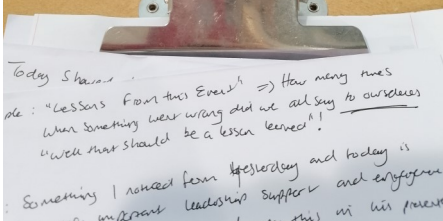 Today
: "Lessons From this Event" => How many times
when something went wrong did we all say to ourselves
"well that should be a lesson learned"!
: Something I noticed from yesterday and today is
important leadership support and engageme
this in his present